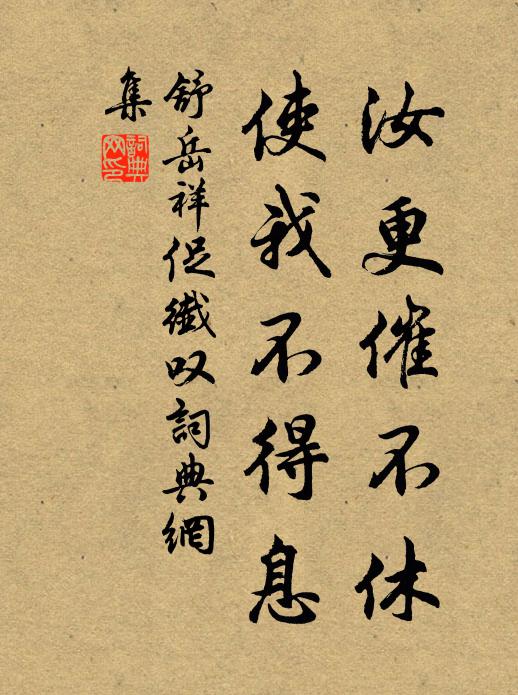 汝更催不休
使我不得息
舒岳祥促織叹詞典網
集
詞典網印